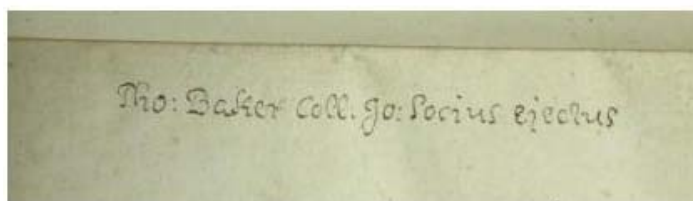 Tho: Baker Coll. Jo: Socius ejectus